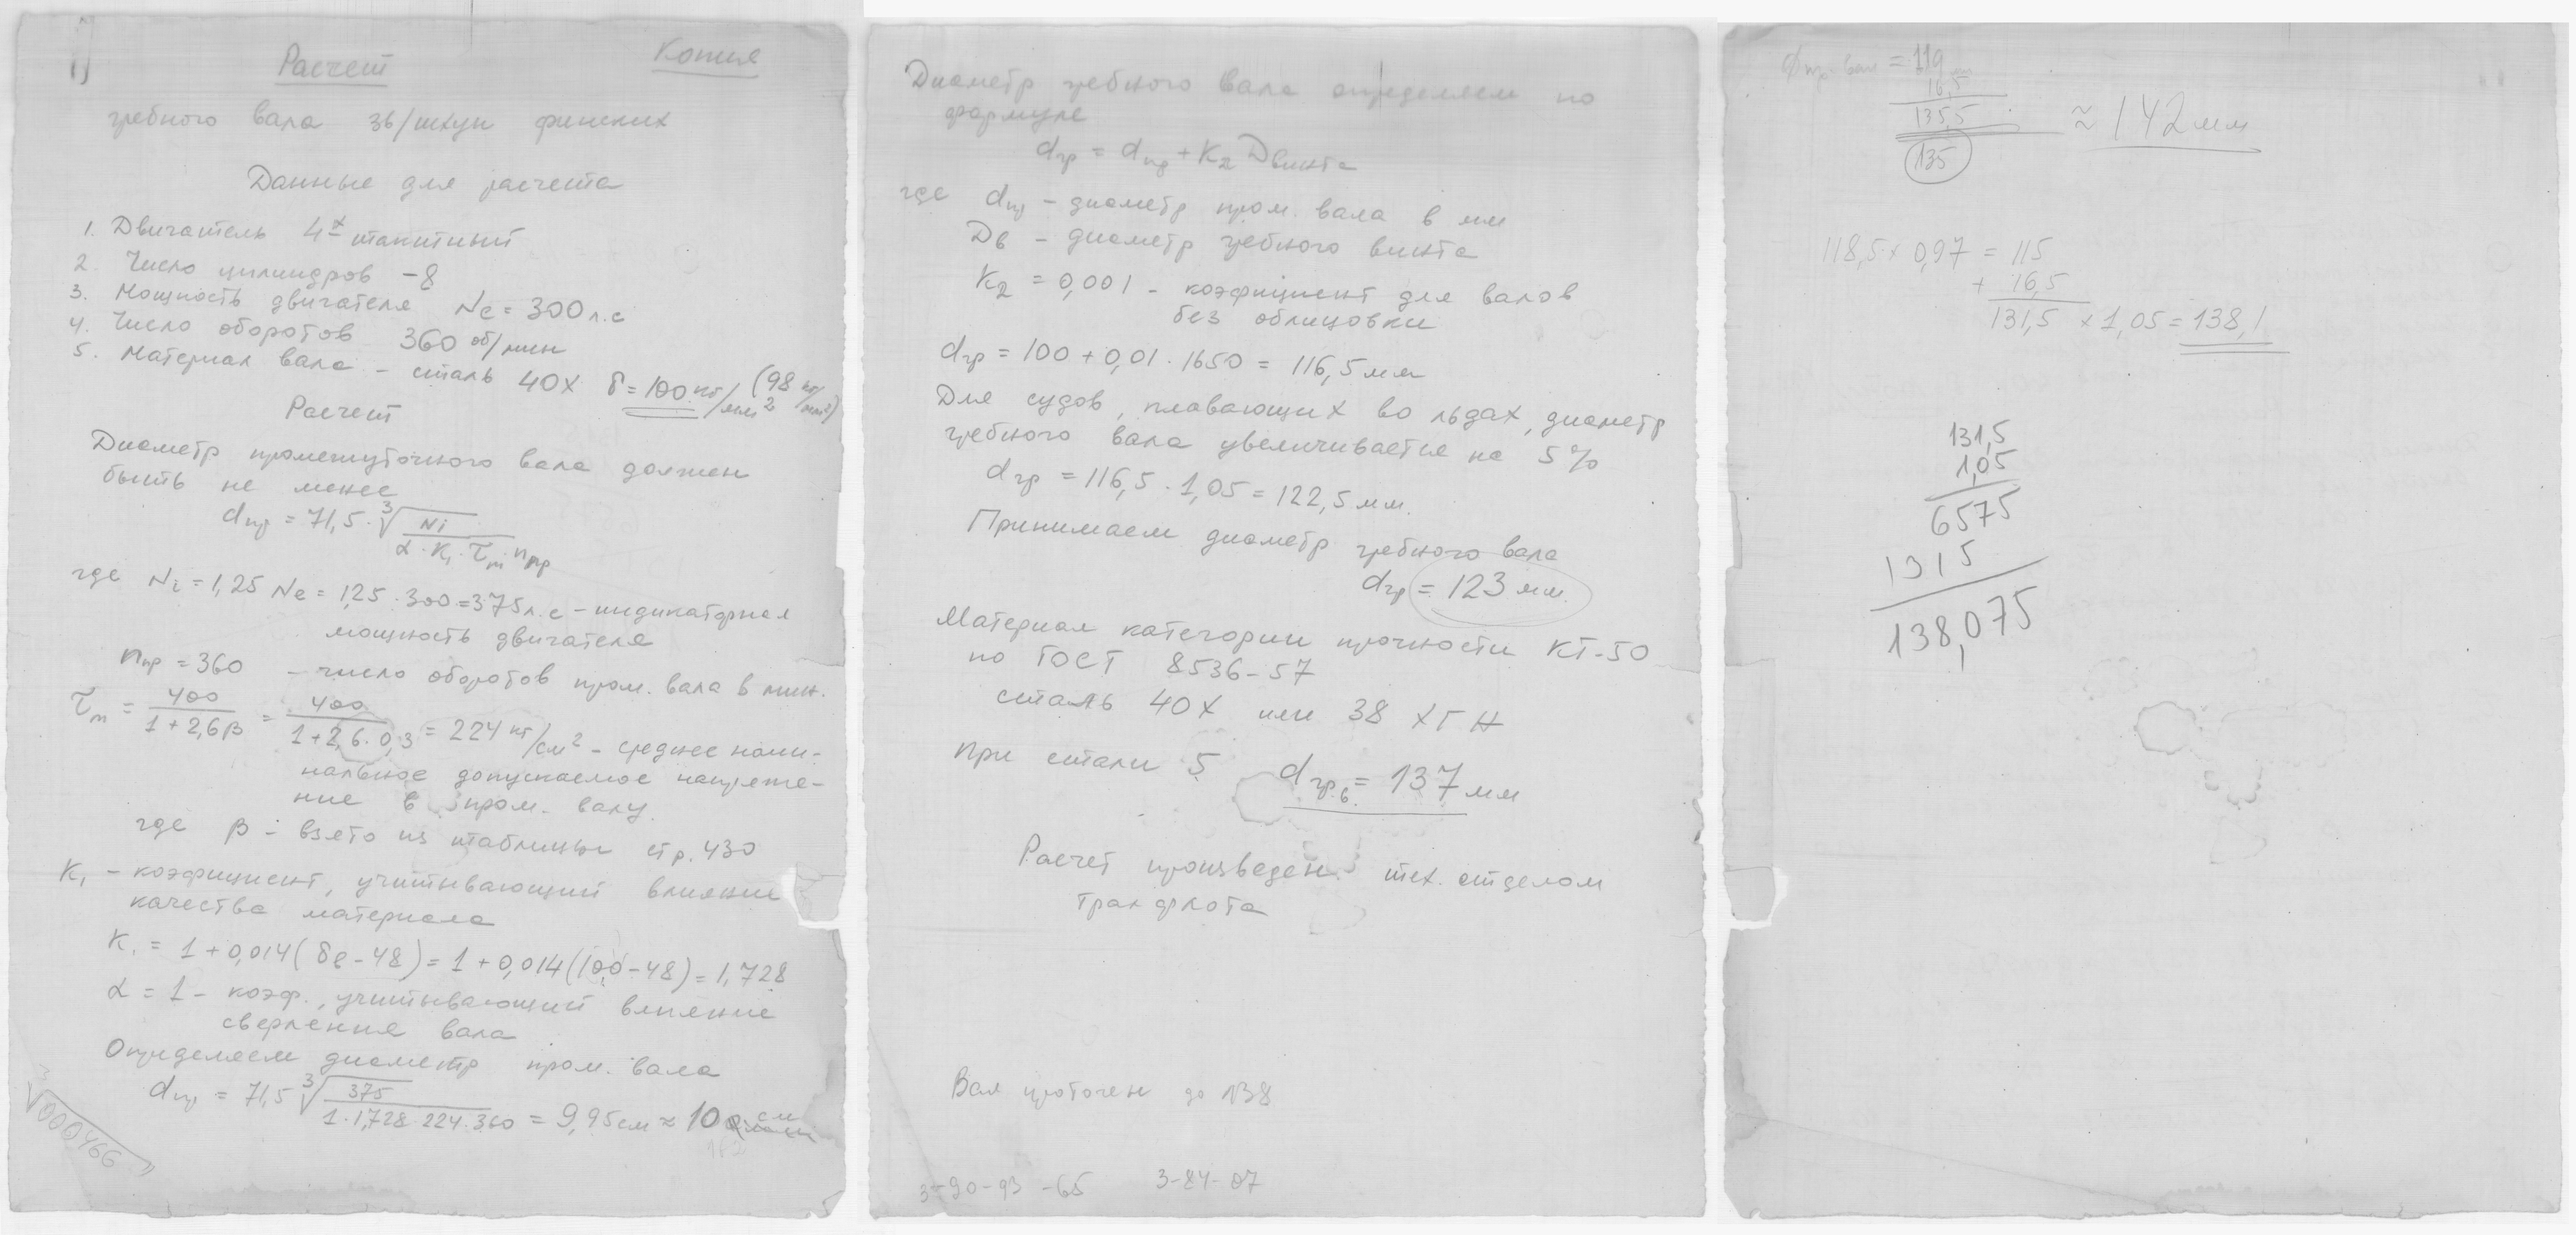 Копия
Расчет
гребного вала зв/шхун финских
Данные для расчета
1. Двигатель 4х тактный
2. Число цилиндров - 8
3. Мощность двигателя Ne = 300 л.с
4. Число оборотов 360 об/мин
5. Материал вала - сталь 40Х δ = 100 кг/мм² (98 кг/мм²)
Расчет
Диаметр промежуточного вала должен
быть не менее
dпр = 71,5 · ∛(Ni / α · K₁ · τm · nпр)
где Ni = 1,25 Ne = 1,25 · 300 = 375 л.с - индикаторная
мощность двигателя
nпр = 360 - число оборотов пром. вала в мин.
τm = 400 / 1 + 2,6β = 400 / 1 + 2,6 · 0,3 = 224 кг/см² - среднее номи-
нальное допускаемое напряже-
ние в пром. валу.
где β - взято из таблицы стр. 430
K₁ - коэфициент, учитывающий влияние
качества материала
K₁ = 1 + 0,014 (δв - 48) = 1 + 0,014 (100 - 48) = 1,728
α = 1 - коэф., учитывающий влияние
сверления вала
Определяем диаметр пром. вала
dпр = 71,5 ∛(375 / 1 · 1,728 · 224 · 360) = 9,95 см ≈ 10 см
∛000466
Диаметр гребного вала определяем по
формуле
dгр = dпр + K₂ Dвинта
где dпр - диаметр пром. вала в мм
Dв - диаметр гребного винта
K₂ = 0,001 - коэфициент для валов
без облицовки
dгр = 100 + 0,01 · 1650 = 116,5 мм
Для судов, плавающих во льдах, диаметр
гребного вала увеличивается на 5%
dгр = 116,5 · 1,05 = 122,5 мм.
Принимаем диаметр гребного вала
dгр = 123 мм.
Материал категории прочности КТ-50
по ГОСТ 8536-57
сталь 40Х или 38 ХГН
При стали 5 dгр.в = 137 мм
Расчет произведен тех. отделом
Тралфлота
Вал проточен до 138
3-90-93 -65 3-84-07
Фпр. вал = 119 мм
16,5
135,5 ≈ 142 мм
135
118,5 × 0,97 = 115
+ 16,5
131,5 × 1,05 = 138,1
131,5
1,05
6575
1315
138,075